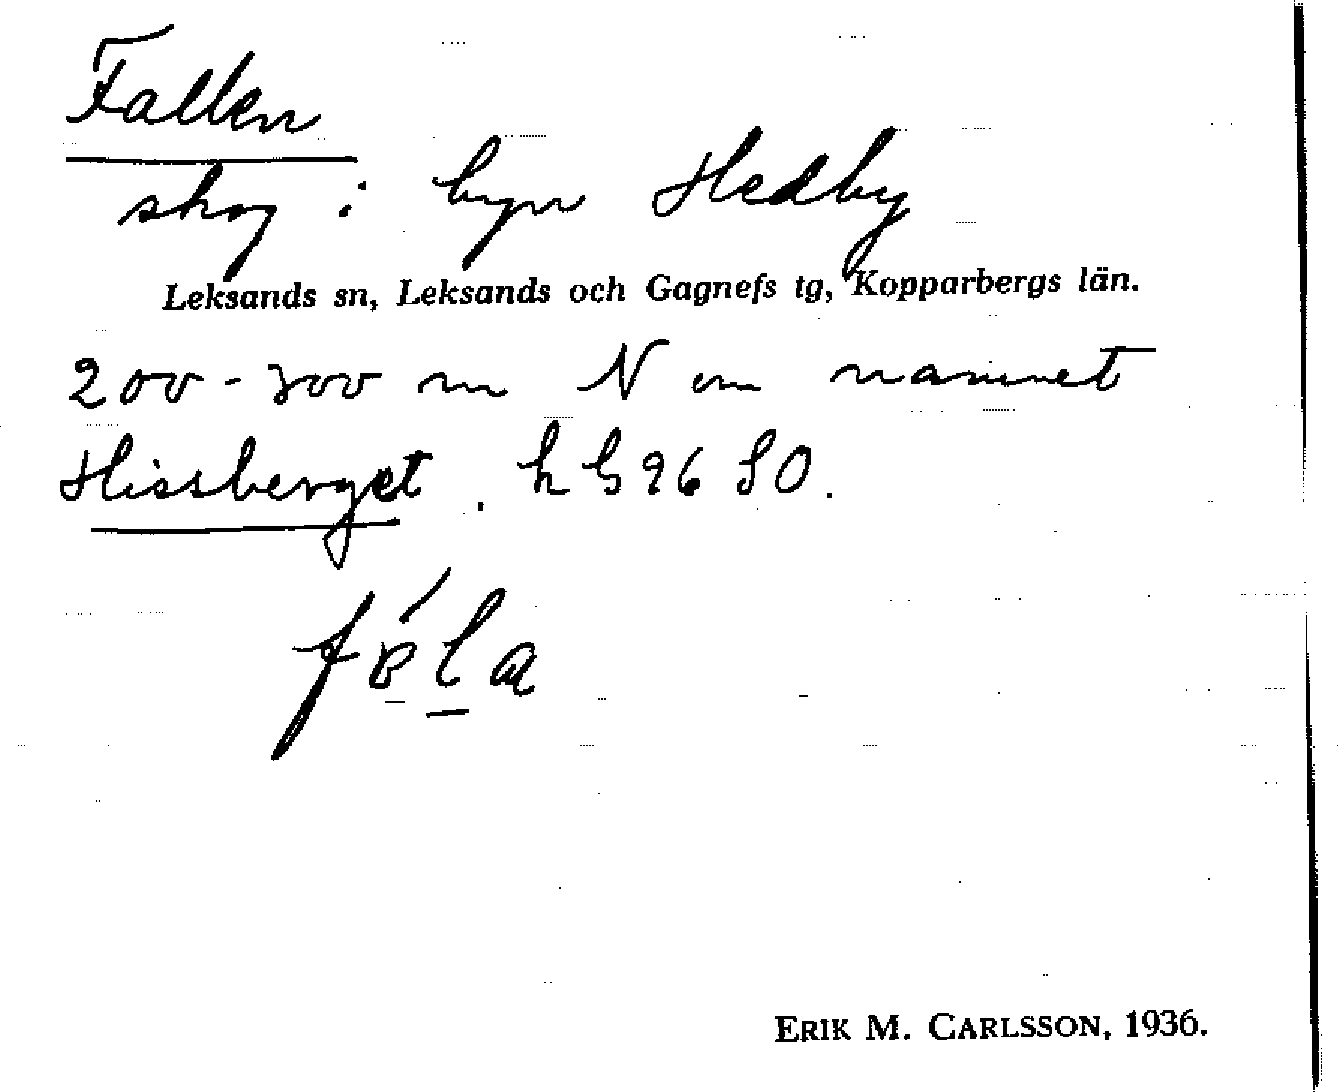 Fallen
skog i byn Hedby
Leksands sn, Leksands och Gagnefs tg, Kopparbergs län.
200-300 m N om namnet
Hissberget. k G 96 SO.
ERIK M. CARLSSON, 1936.